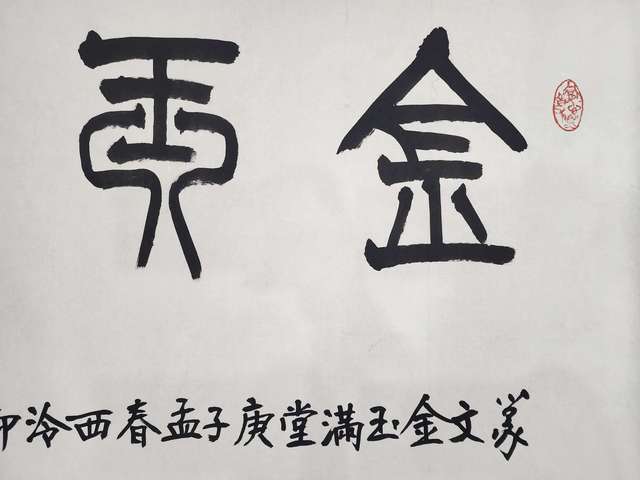 金玉
篆文金玉满堂庚子孟春西泠印